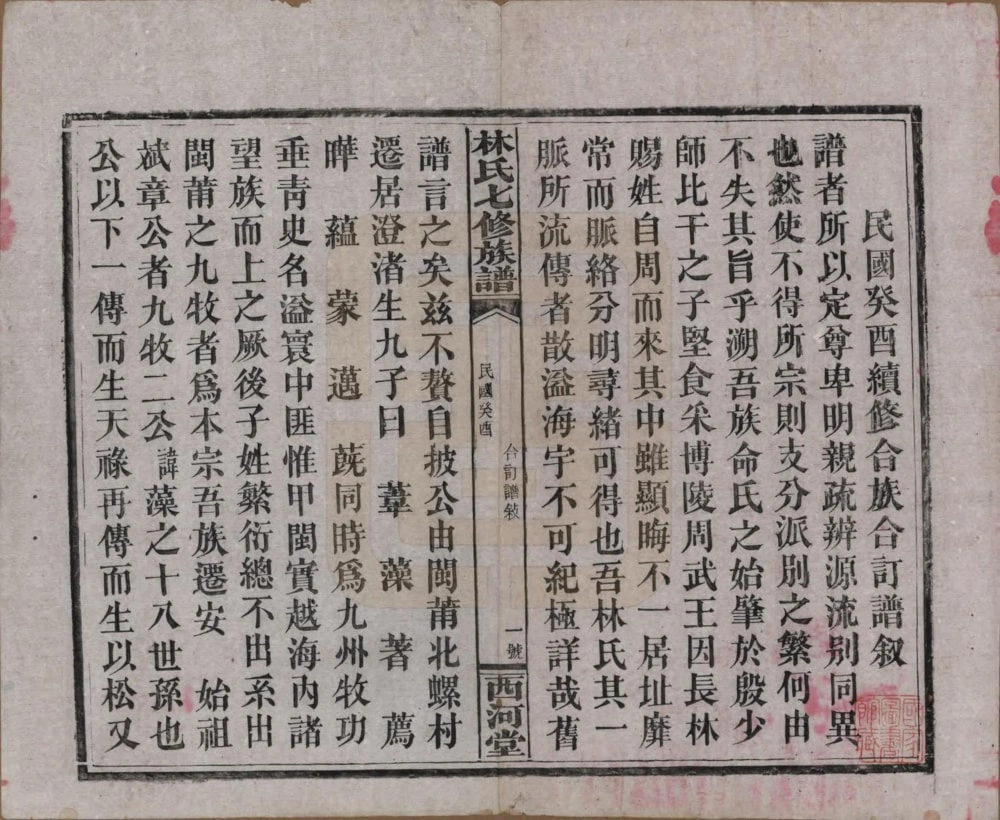 民國癸酉續修合族合訂譜叙
譜者所以定尊卑明親疏辨源流別同異
也然使不得所宗則支分派別之繁何由
不失其旨乎溯吾族命氏之始肇於殷少
師比干之子堅食采博陵周武王因長林
賜姓自周而來其中雖顯晦不一居址靡
常而脈絡分明尋緒可得也吾林氏其一
脈所流傳者散溢海宇不可紀極詳哉舊
林氏七修族譜
民國癸酉
合訂譜敘
一號
西河堂
譜言之矣茲不贅自披公由閩莆北螺村
遷居澄渚生九子曰 葦 藻 著 薦
曄 蘊 蒙 邁 蔇同時爲九州牧功
垂靑史名溢寰中匪惟甲閩實越海內諸
望族而上之厥後子姓繁衍總不出系出
閩莆之九牧者爲本宗吾族遷安 始祖
斌章公者九牧二公諱藻之十八世孫也
公以下一傳而生天祿再傳而生以松又